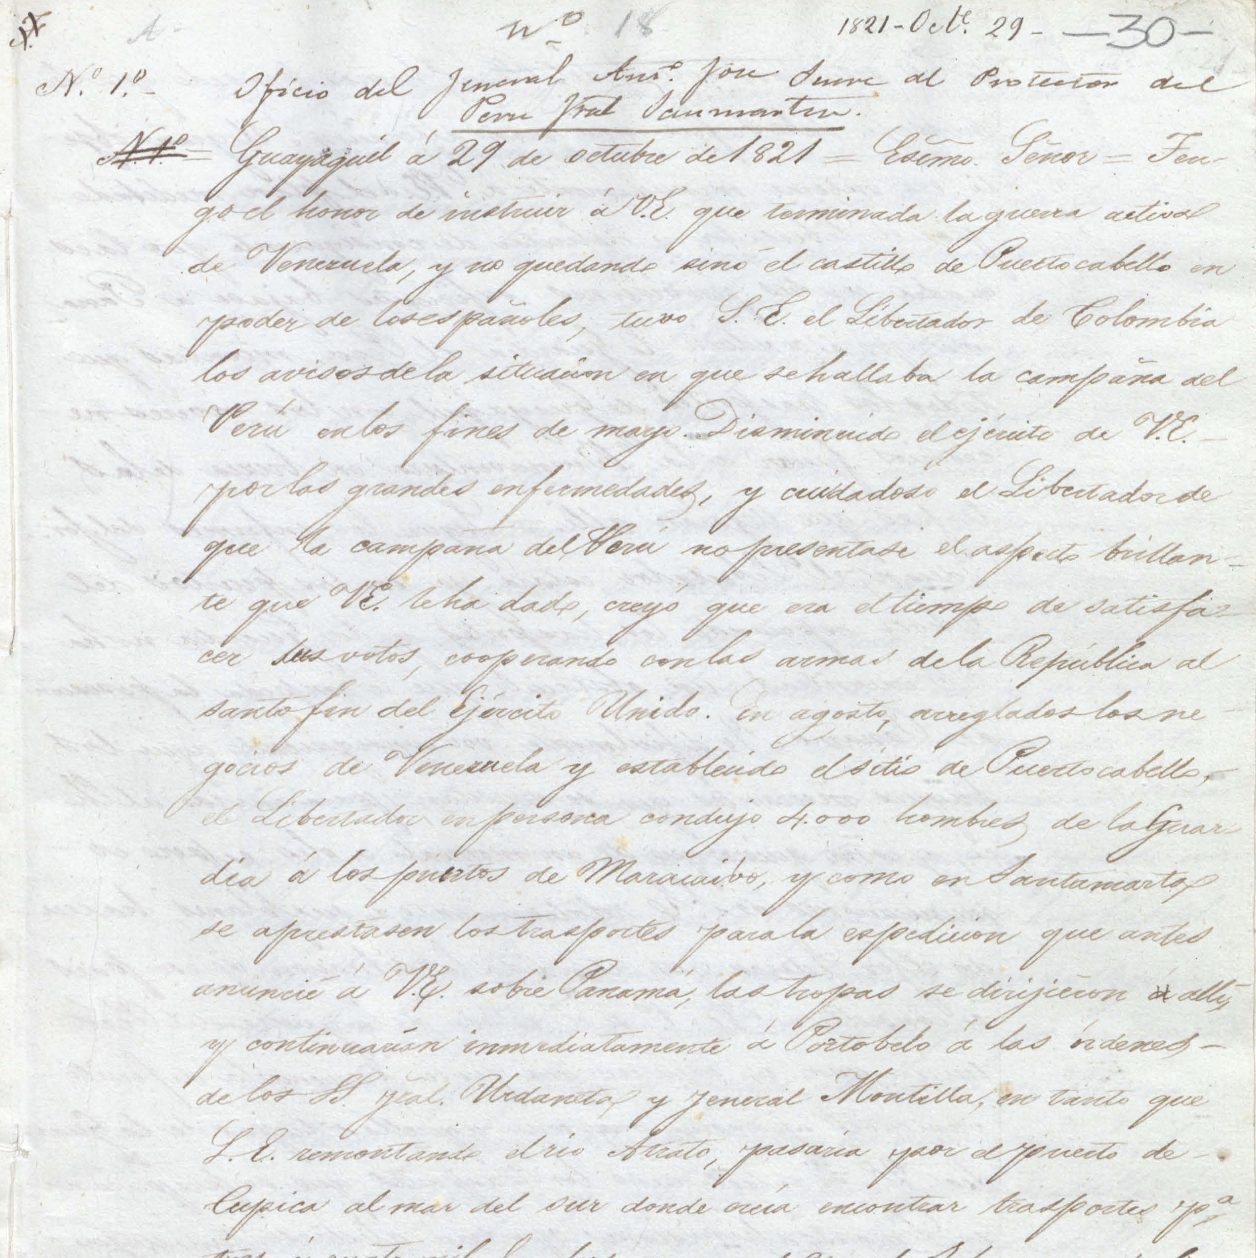 A- Nº 18 1821-Octe. 29- -30-
N.º 1.º- Oficio del Jeneral Anto. José Sucre al Protector del
Peru Jral Sanmartin.
N.1º= Guayaquil á 29 de octubre de 1821 = Esemo. Señor = Ten-
go el honor de instruir á V.E. que terminada la guerra activa
de Venezuela, y no quedando sinó el castillo de Puertocabello en
poder de los españoles, tuvo S. E. el Libertador de Colombia
los avisos de la situacion en que se hallaba la campaña del
Perú en los fines de mayo. Disminuido el ejército de V.E.-
por las grandes enfermedades, y cuidadoso el Libertador de
que la campaña del Perú no presentase el aspecto brillan-
te que V.E. le ha dado, creyó que era el tiempo de satisfa-
cer sus votos, cooperando con las armas de la República al
santo fin del Ejército Unido. En agosto, arreglados los ne-
gocios de Venezuela y establecido el sitio de Puertocabello,-
el Libertador en persona condujo 4.000 hombres de la Guar-
dia á los puertos de Maracaivo, y como en Santamarta
se aprestasen los trasportes para la espedicion que antes
anuncié á V.E. sobre Panamá, las tropas se dirijieron á allí,
y continuarán inmediatamente á Portobelo á las órdenes-
de los SS. jral. Urdaneta y jeneral Montilla, en tanto que
S. E. remontando el rio Atrato, pasaria por el puerto de-
Cupica al mar del sur donde creia encontrar trasportes pa.